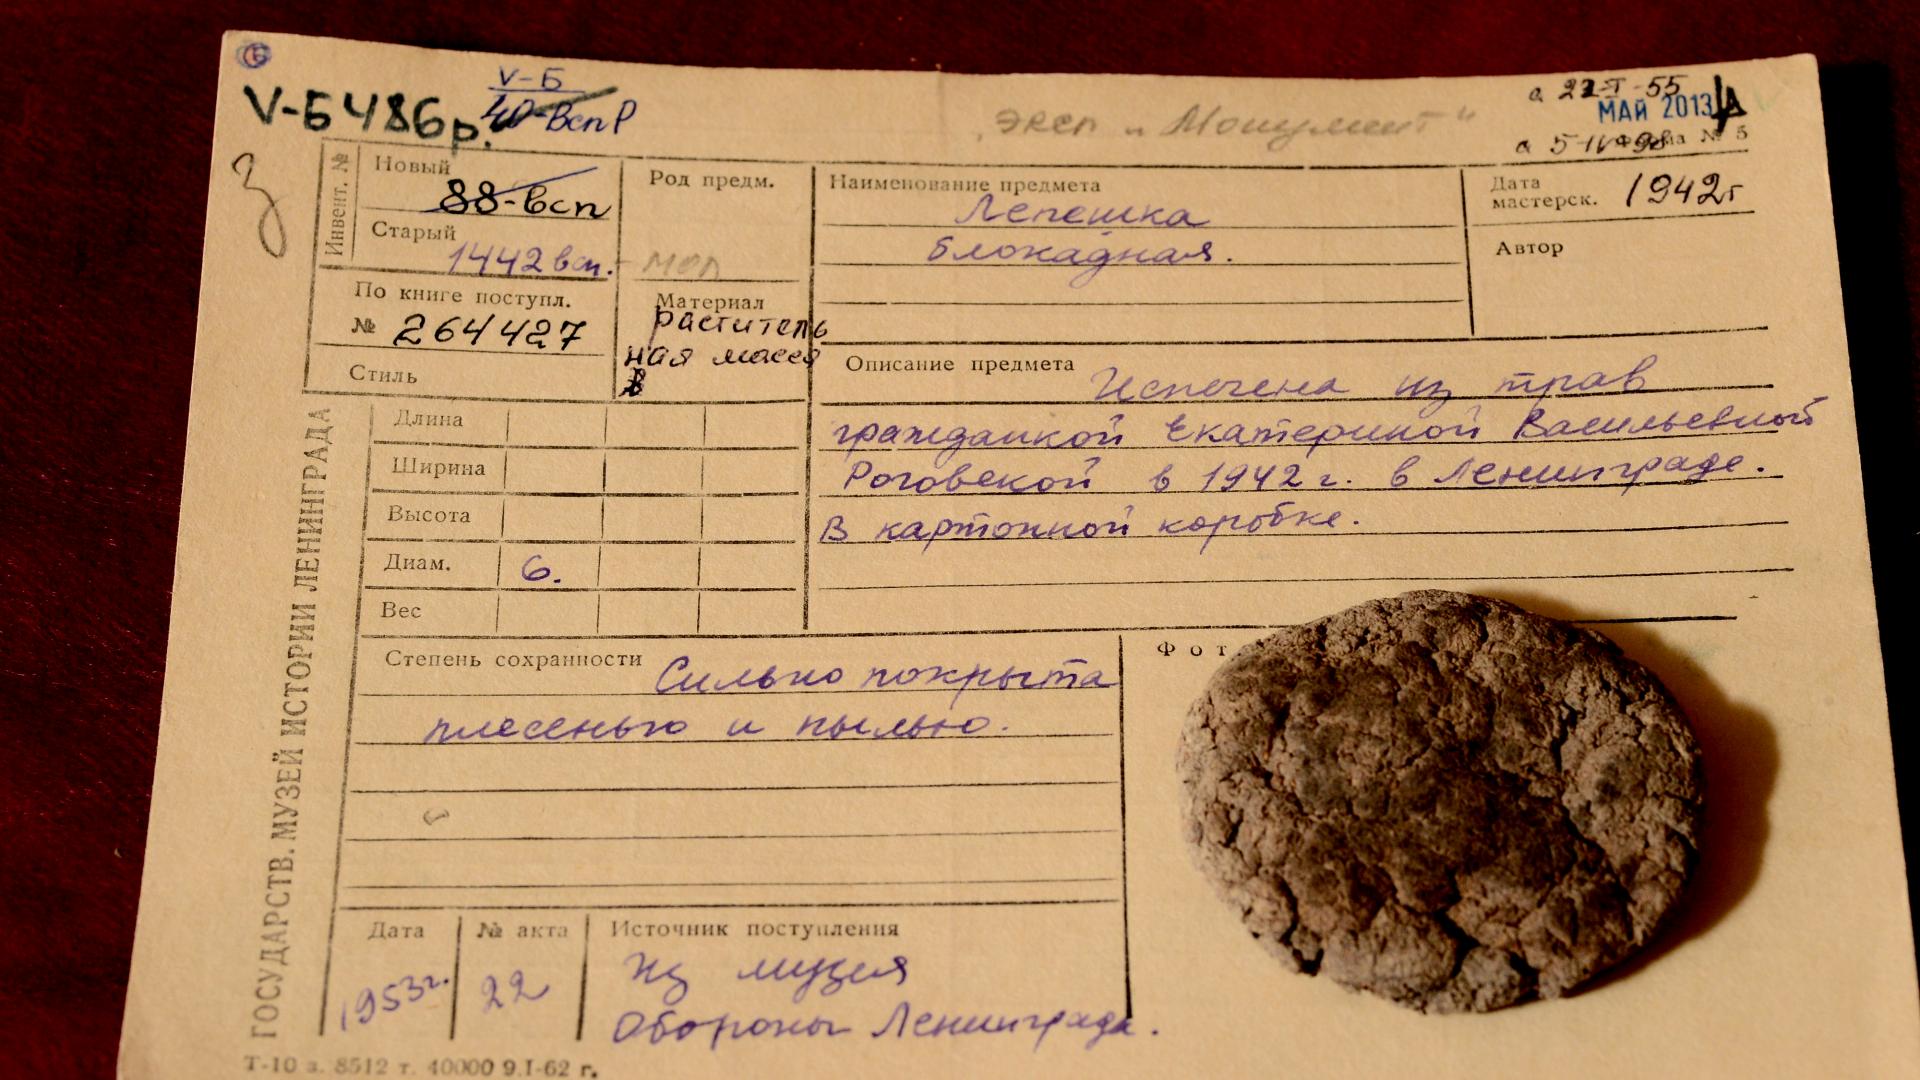 V-Б
V-Б 486р.
40-ВспР
эксп „Монумент"
МАЙ 2013
Форма № 5
Инвент. №
Новый
88-всп
Старый
1442 всп.
По книге поступл.
№ 264427
Стиль
Род предм.
Материал
раститель
ная масса
Наименование предмета
Лепешка
блокадная.
Дата
мастерск. 1942г
Автор
Описание предмета Испечена из трав
гражданкой Екатериной Васильевной
Роговской в 1942 г. в Ленинграде.
В картонной коробке.
Длина
Ширина
Высота
Диам. 6.
Вес
Степень сохранности Сильно покрыта
плесенью и пылью.
Фот
Дата
1953г.
№ акта
22
Источник поступления
Из музея
Обороны Ленинграда.
ГОСУДАРСТВ. МУЗЕЙ ИСТОРИИ ЛЕНИНГРАДА
Т-10 з. 8512 т. 40000 9.I-62 г.